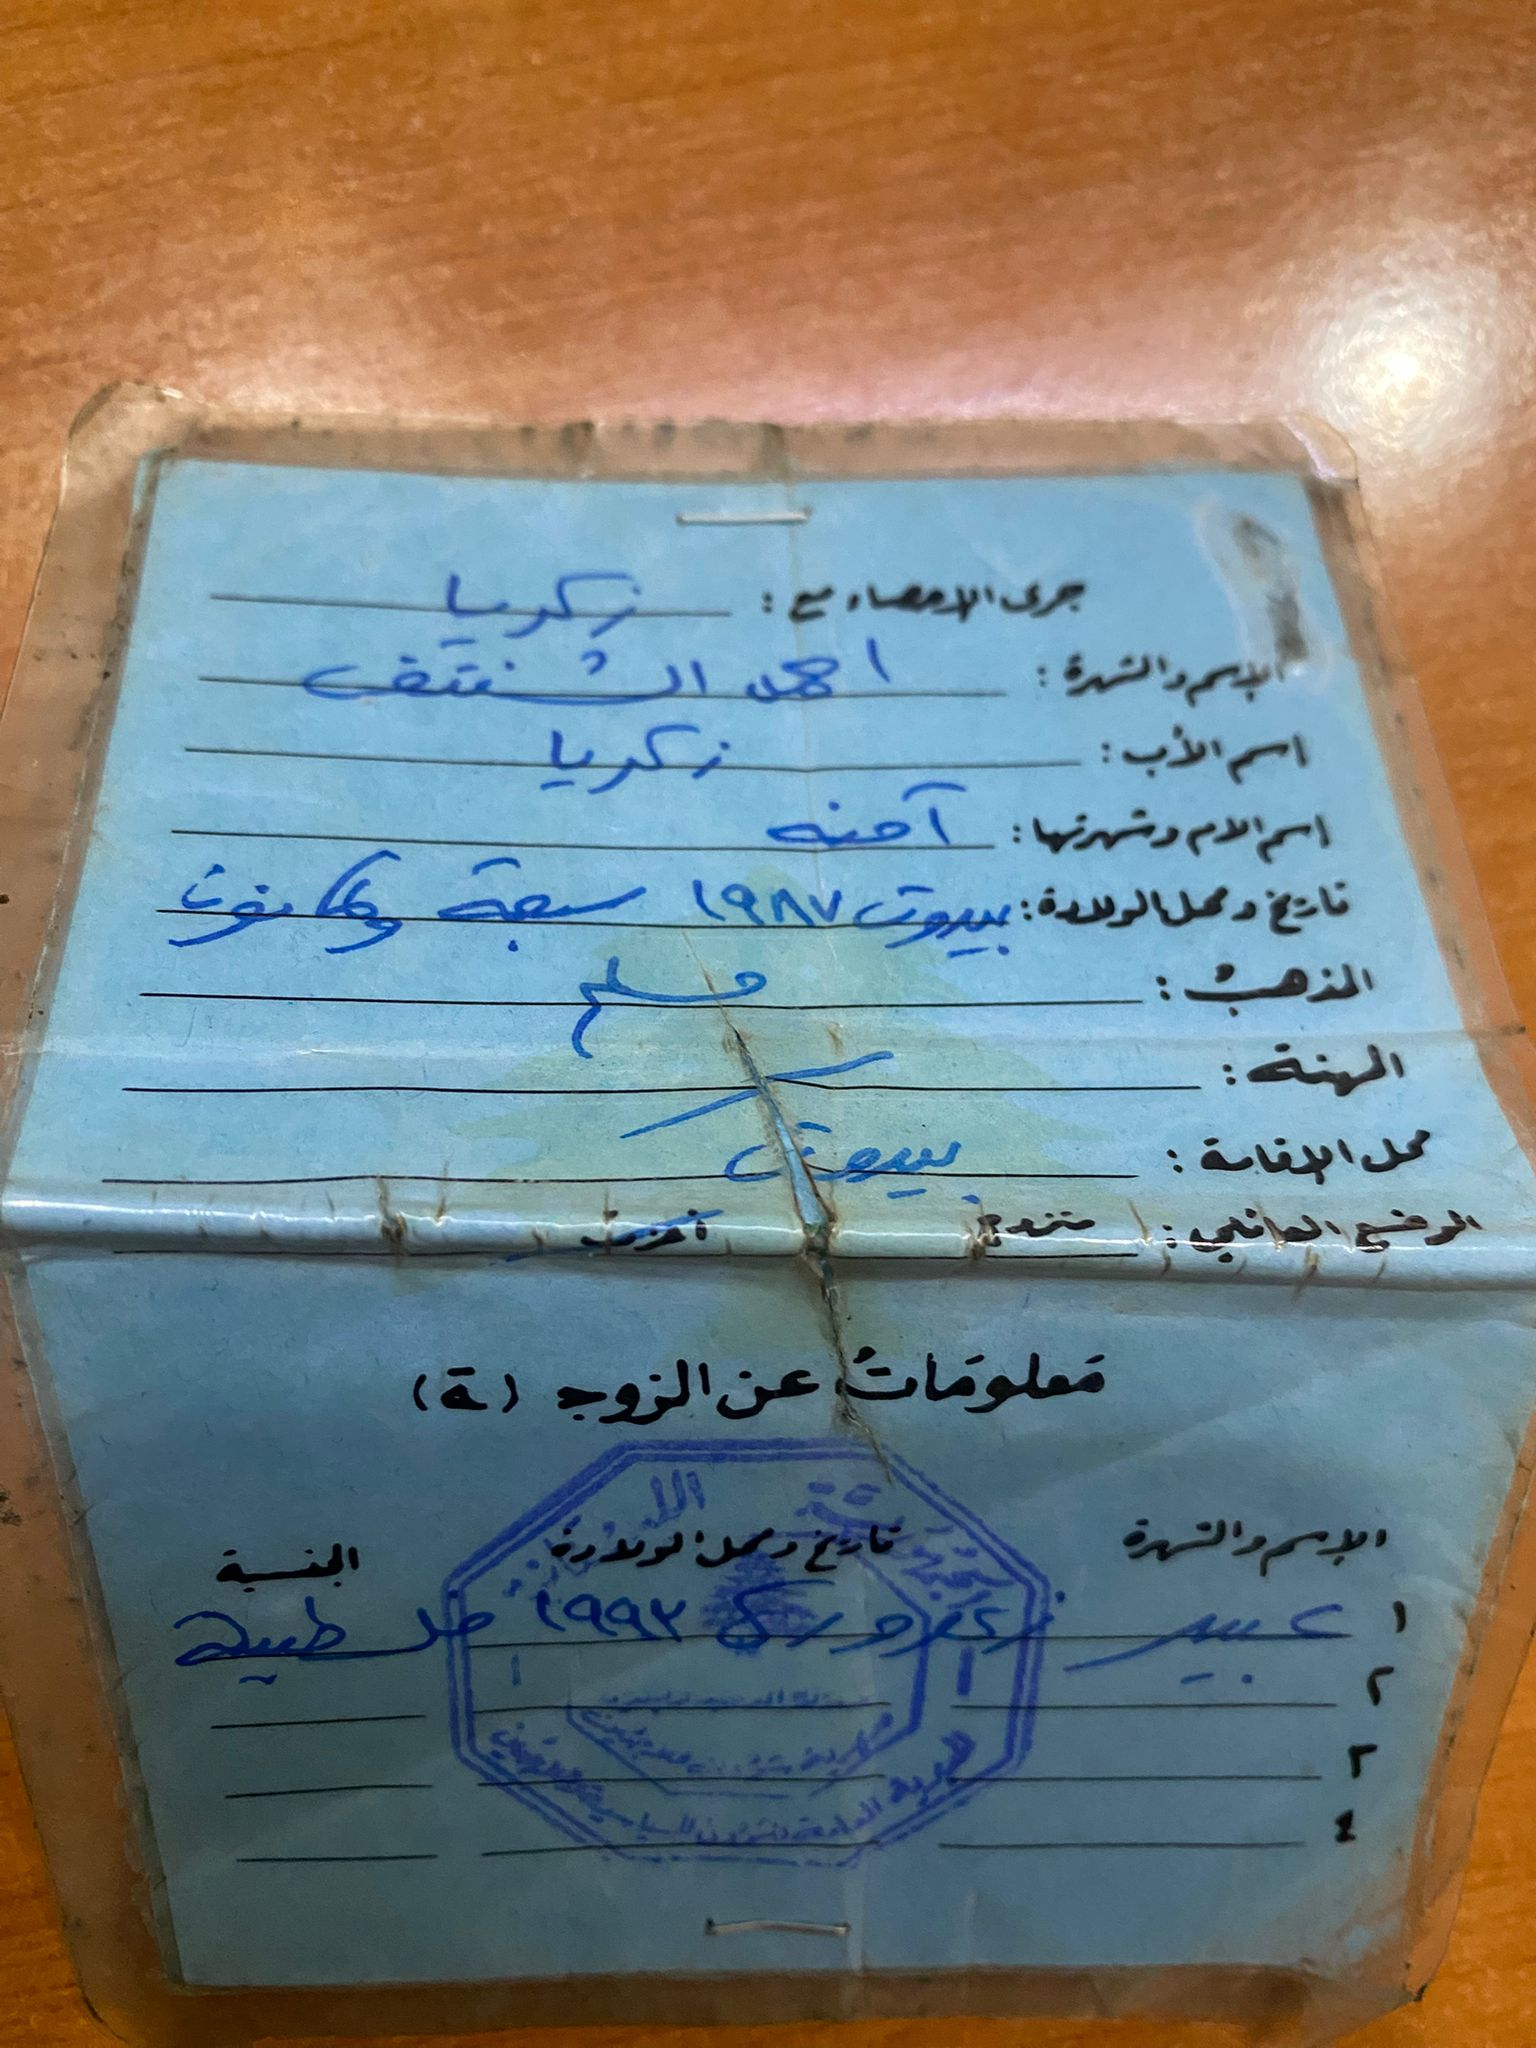 جرى الإحصاء مع: زكريا
الإسم والشهرة: احمد الشنتف
اسم الأب: زكريا
اسم الام وشهرتها: آمنه
تاريخ ومحل الولادة: بيروت ١٩٨٧ سبعة وثمانون
المذهب: مسلم
المهنة:
محل الإقامة: بيروت
الوضع العائلي: متزوج أعزب
معلومات عن الزوج (ة)
الإسم والشهرة تاريخ ومحل الولادة الجنسية
١ عبير ١٩٩٢ فلسطينية
٢
٣
٤
المديرية العامة للشؤون السياسية واللاجئين